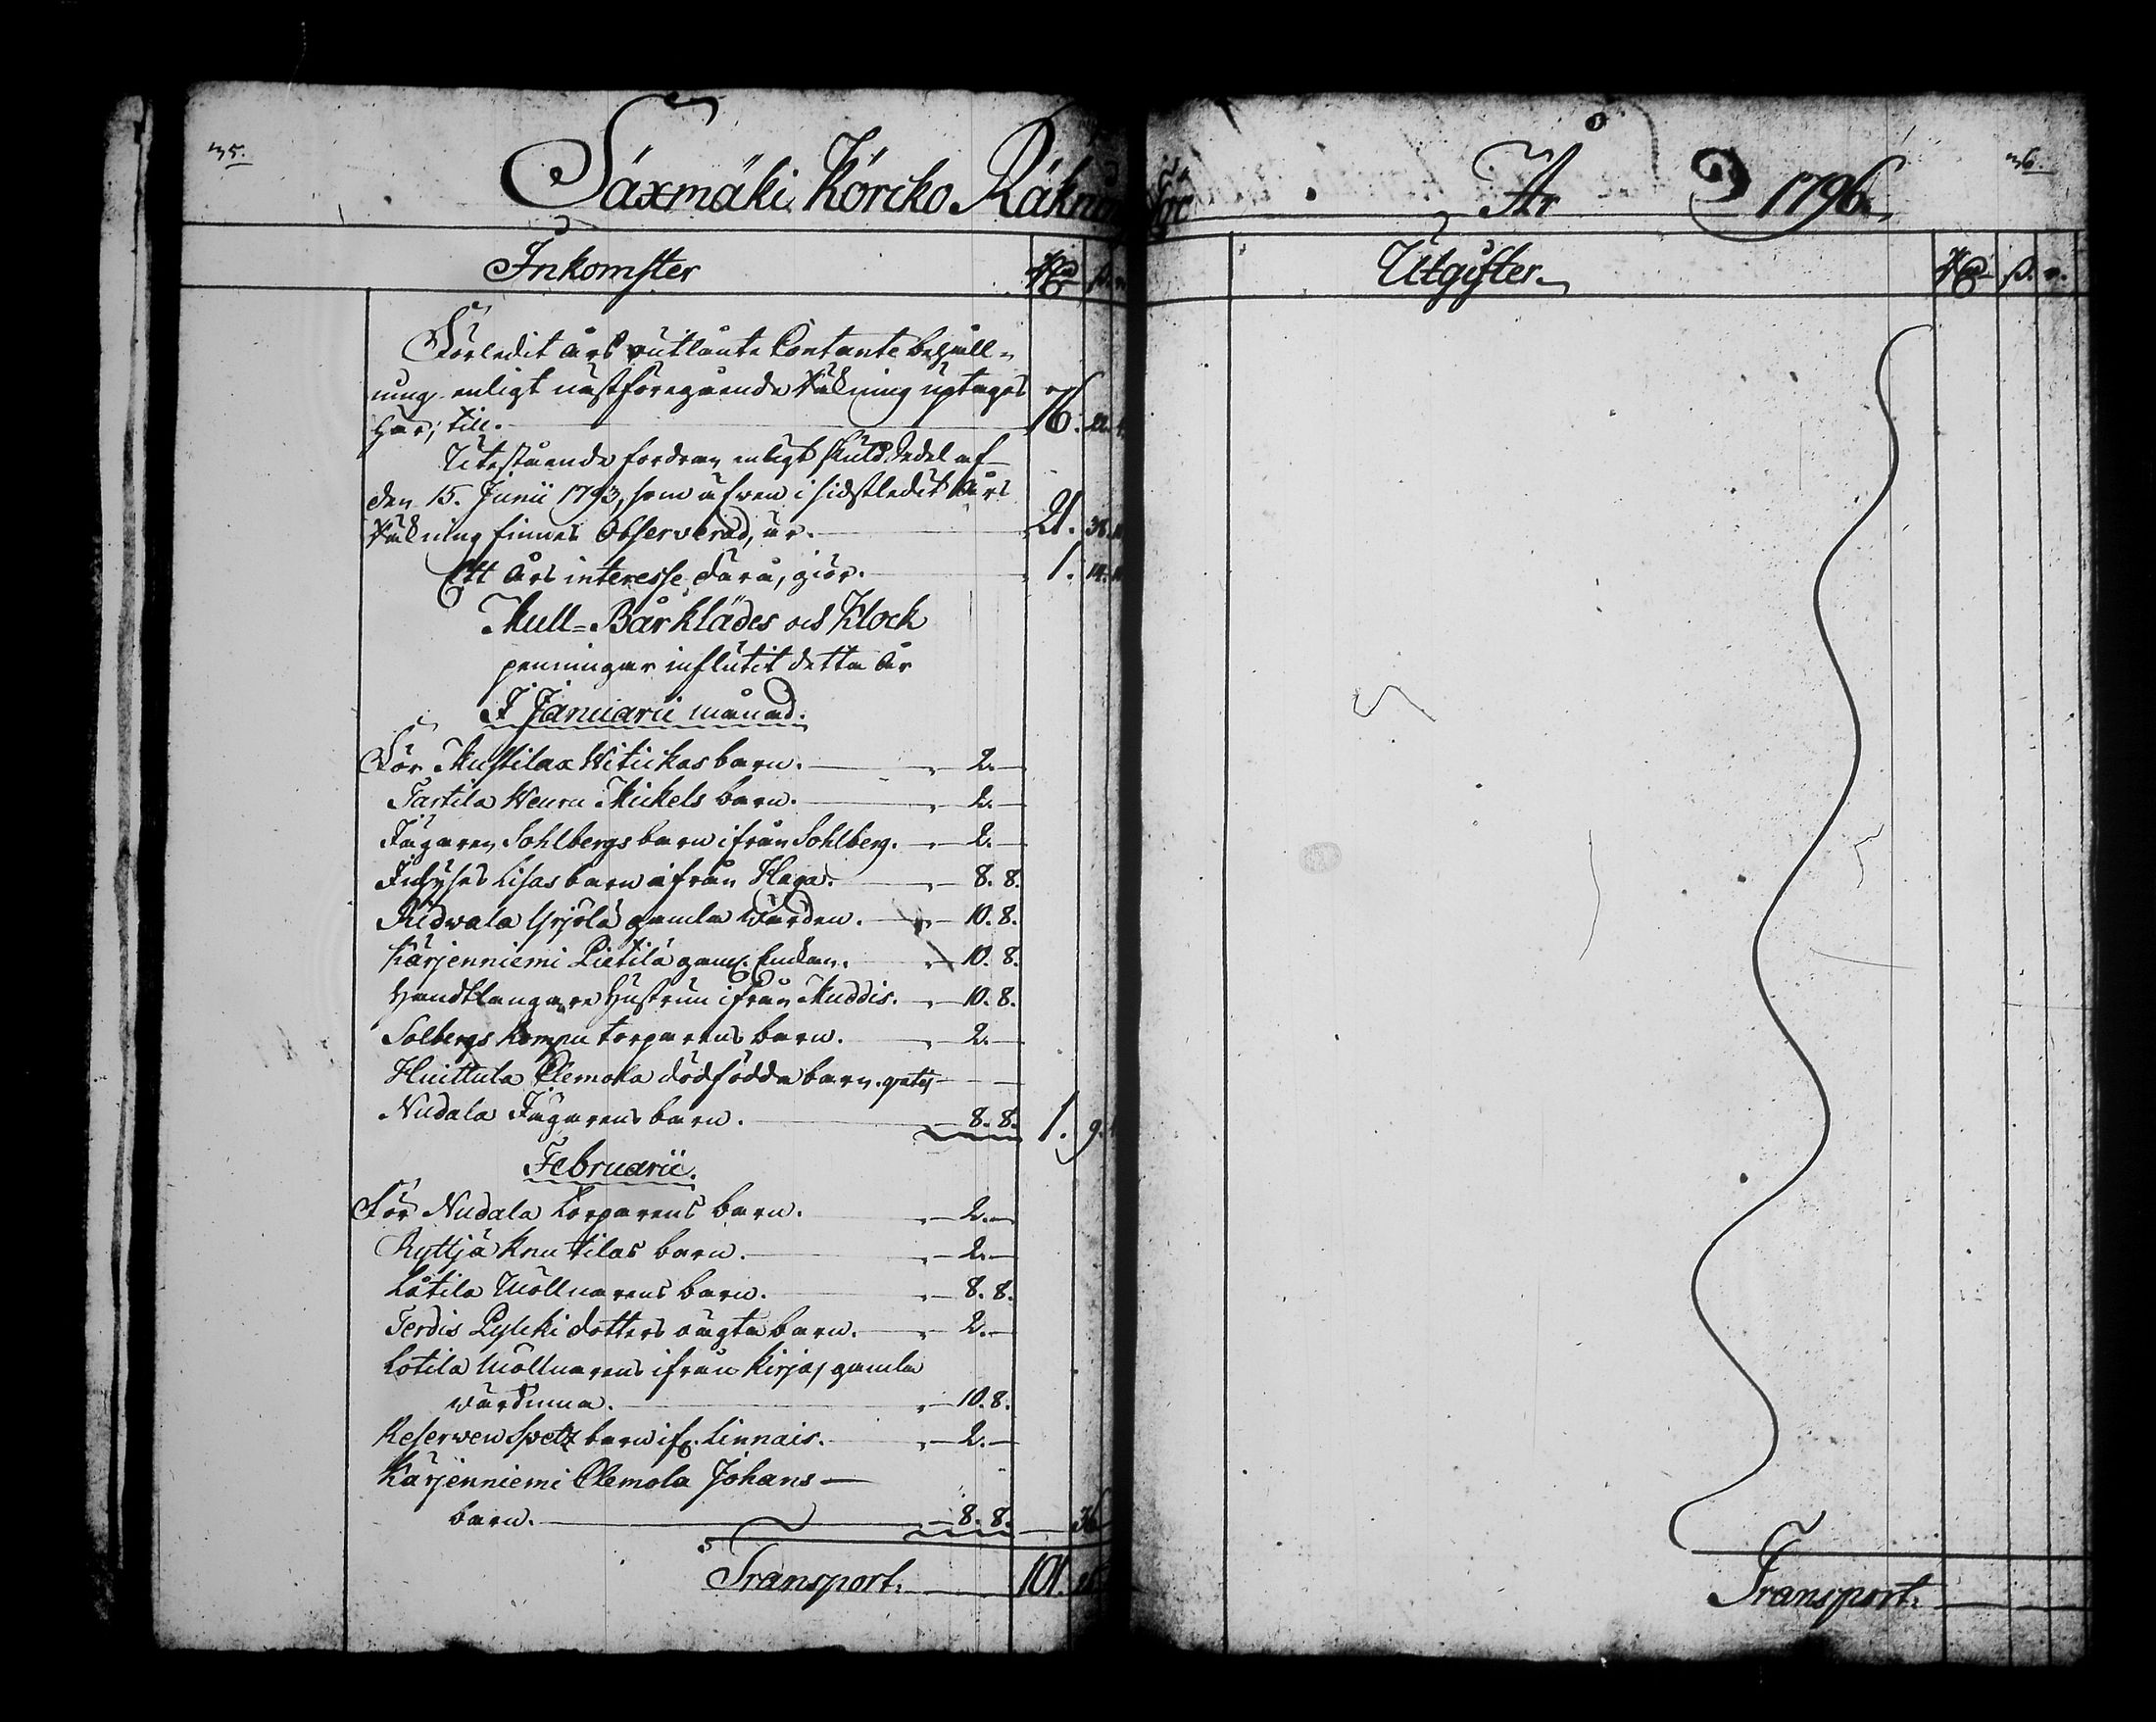 35.
Säxmäki Körcko Räkning
Inkomster
Förledit års outlånte Contante behåll-
ning enligt nästföregående Räkning uptages
här, till. 76. 22.
Utestående fordran enligt skuldsedel af
den 15. Junii 1793, som äfwen i sidstledit års
Räkning finnes Observerad, är. 21. 38.
Ett års interesse därå, giör. 1. 14.
Mull- Bårklädes och Klock
penningar influtit detta år
I Januarii månad.
För Mustilax Witickas barn. 2.
Tartila Mickels barn. 2.
Jägaren Sohlbergs barn ifrån Sohlberg. 2.
Lisas barn ifrån Haga. 8. 8.
Ridwala Yrjölä gamla wärden. 10. 8.
Kärjenniemi Pietilä gaml. Enckan. 10. 8.
Handtlangare hustrun ifrån Muddis. 10. 8.
Solbergs Kompu torparens barn. 2.
Huittula Clemola dödfödda barn. gratis
Nudala Jägarens barn. 8. 8. 1. 9.
Februarii.
För Nudala Torparens barn. 2.
Ryttjä Knutilas barn. 2.
Låtila Möllnarens barn. 8. 8.
Terdis Pylcki dotters oägta barn. 2.
Lotila Möllnarens ifrån Kirja, gamla
wärdinna. 10. 8.
Reserwen Spetz barn if. Linnais. 2.
Kärjenniemi Clemola Johans
barn. 8. 8. 36
Transport. 101.
36.
för År 1796.
Utgifter.
Transport.